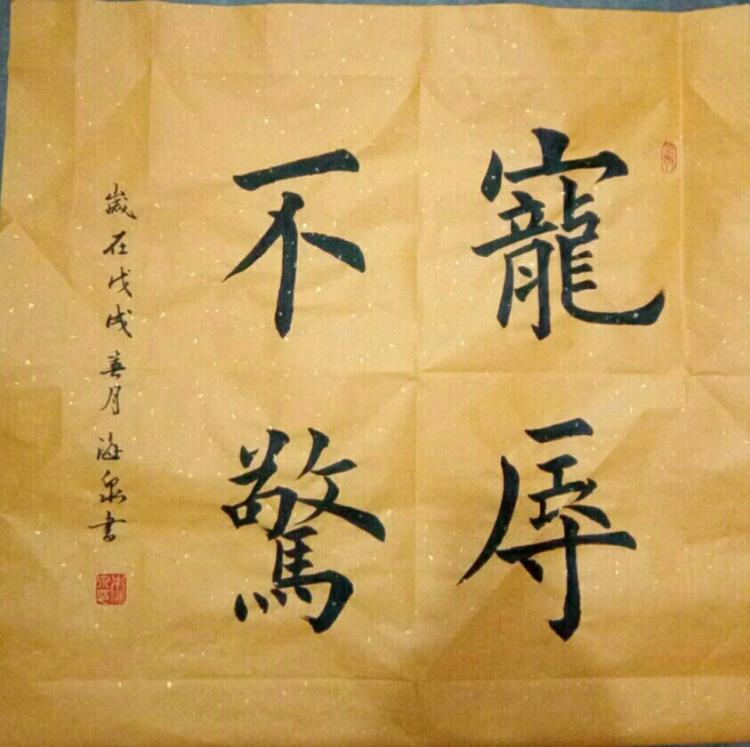 寵辱
不驚
歲在戊戌春月海泉書